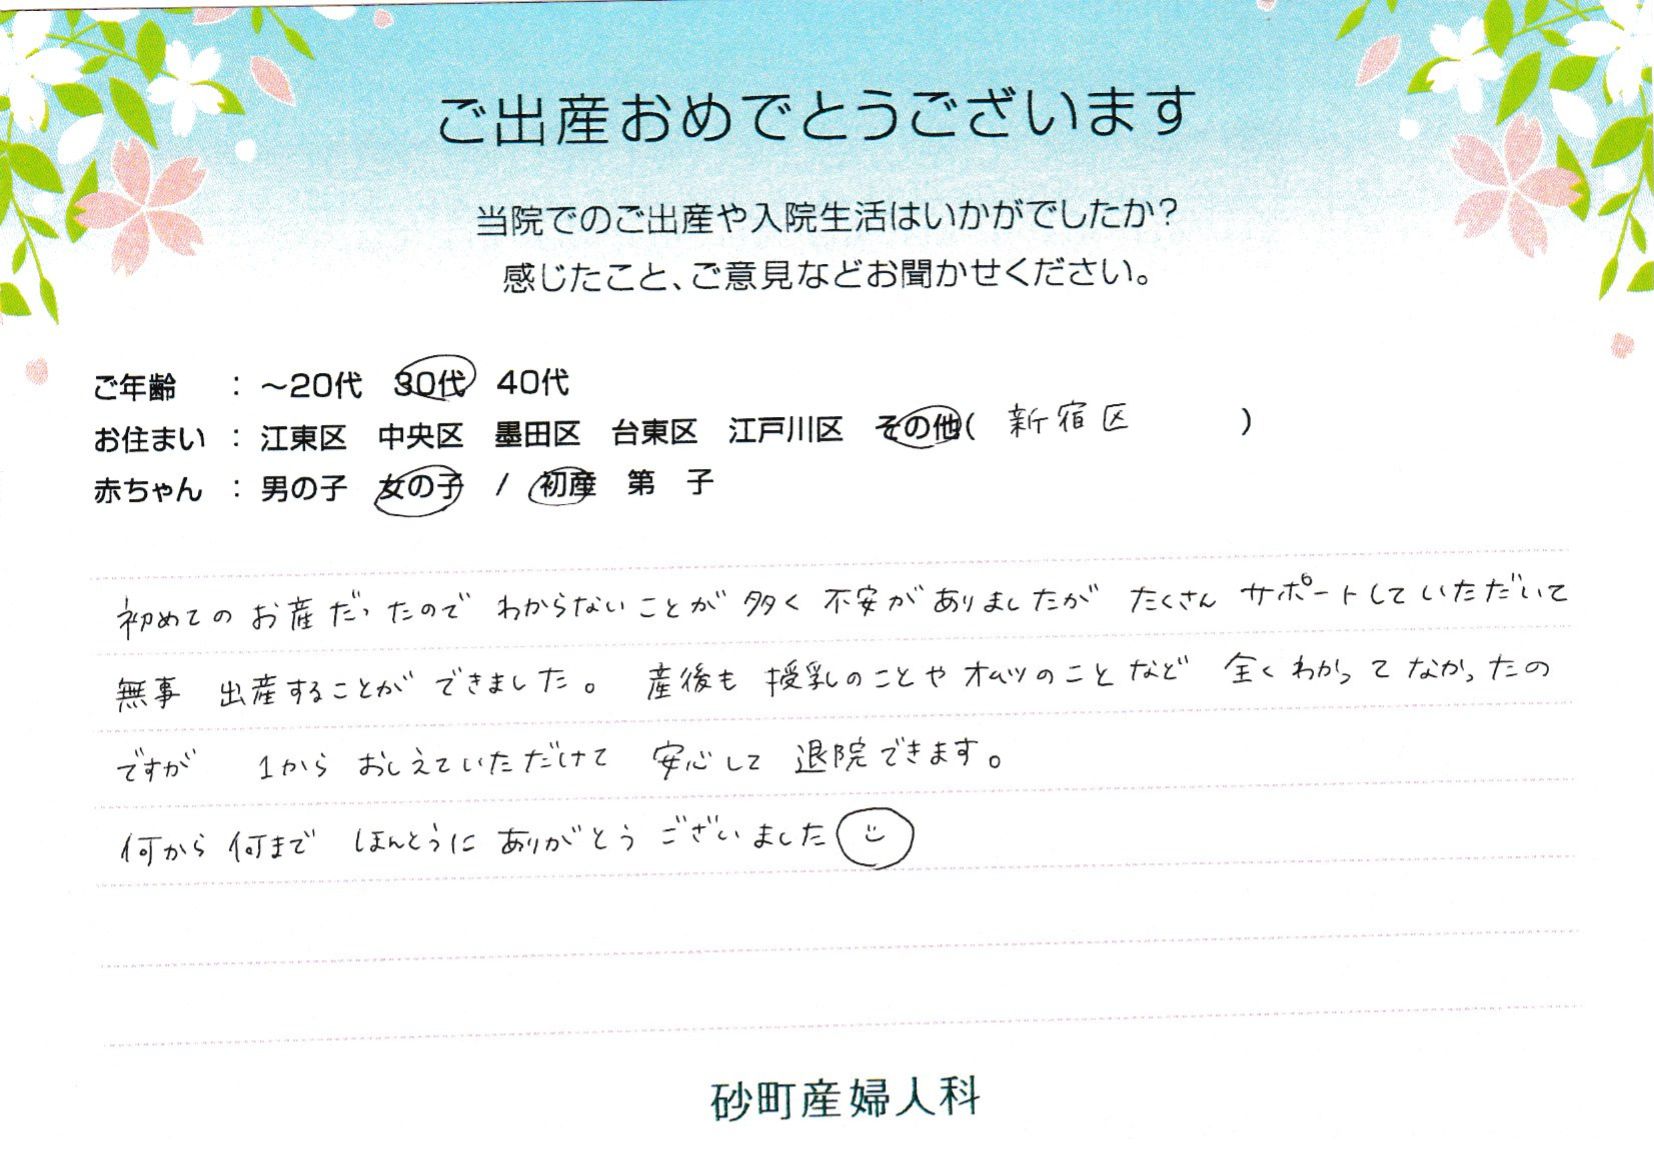 ご出産おめでとうございます
当院でのご出産や入院生活はいかがでしたか?
感じたこと、ご意見などお聞かせください。
ご年齢 : ～20代 30代 40代
お住まい : 江東区 中央区 墨田区 台東区 江戸川区 その他( 新宿区 )
赤ちゃん : 男の子 女の子 / 初産 第 子
初めてのお産だったので わからないことが 多く 不安がありましたが たくさん サポートしていただいて
無事 出産することが できました。 産後も 授乳のことや オムツのこと など 全くわかってなかったの
ですが 1から おしえていただけて 安心して 退院できます。
何から何まで ほんとうに ありがとう ございました
砂町産婦人科